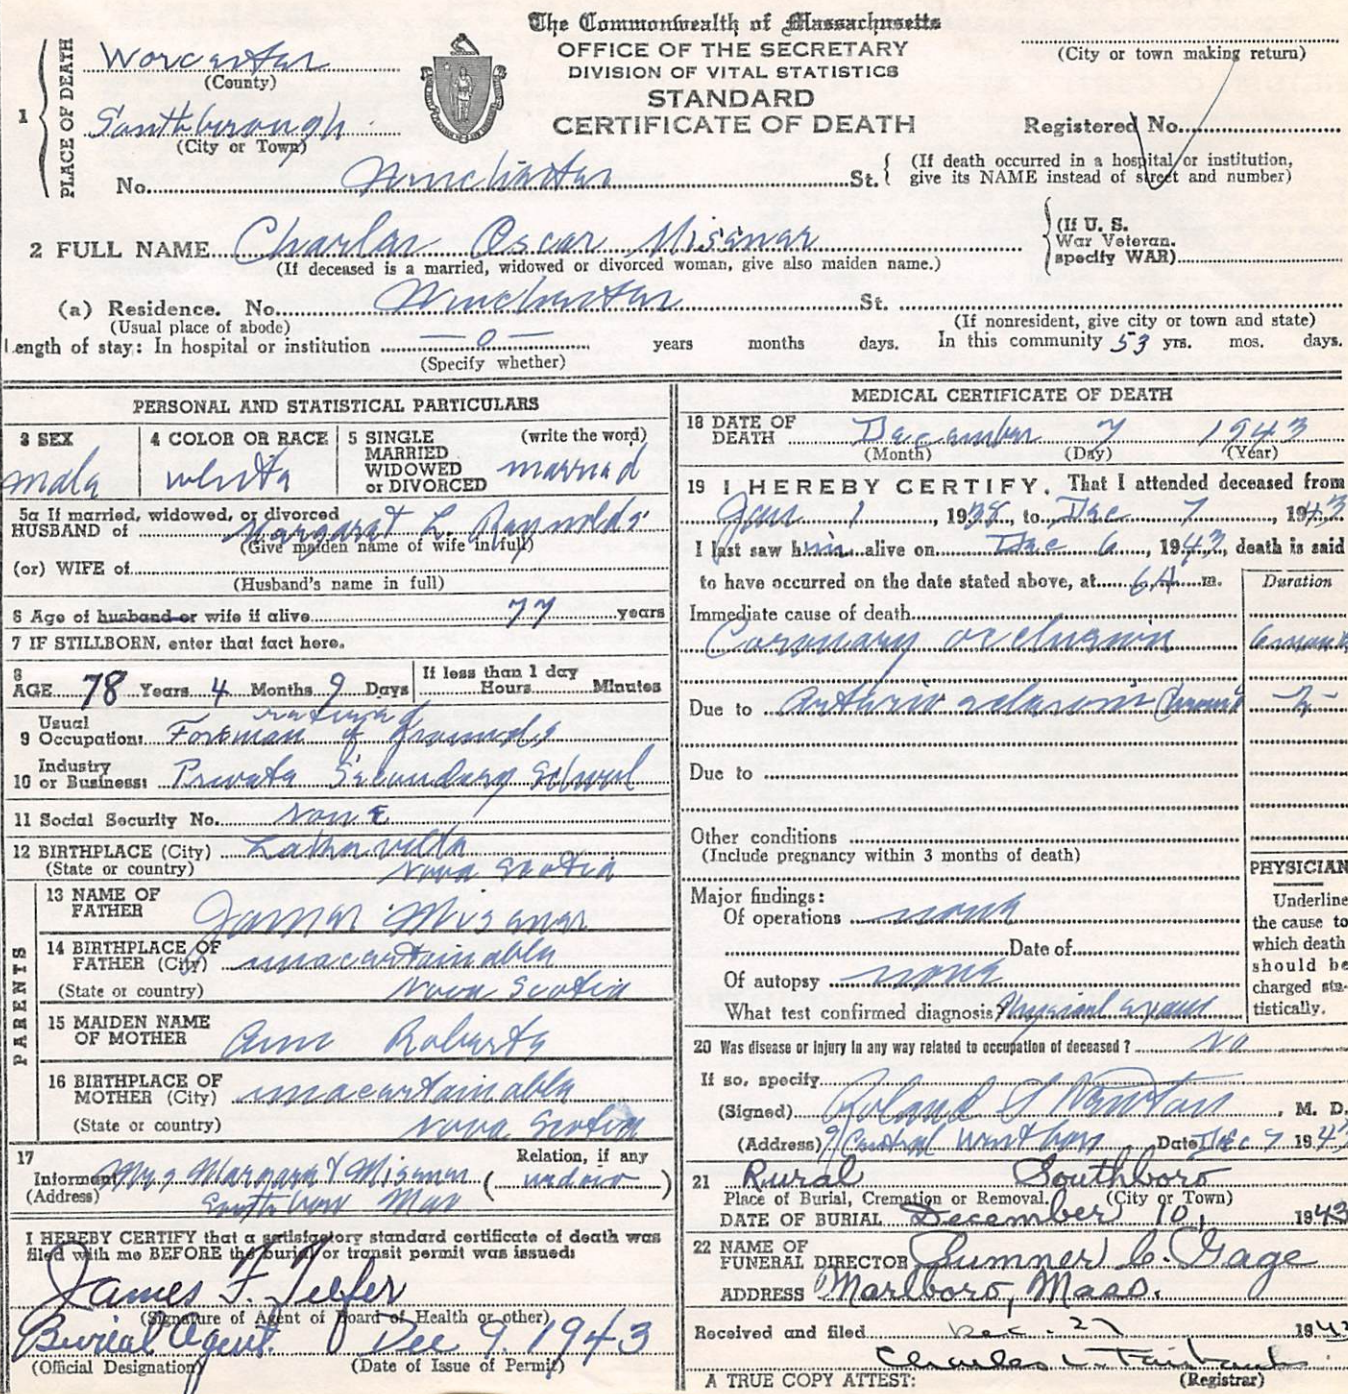 The Commonwealth of Massachusetts
OFFICE OF THE SECRETARY
DIVISION OF VITAL STATISTICS
STANDARD
CERTIFICATE OF DEATH
(City or town making return)
Registered No.
1 PLACE OF DEATH
Worcester
(County)
Southborough
(City or Town)
No. Winchester St. (If death occurred in a hospital or institution, give its NAME instead of street and number)
2 FULL NAME Charles Oscar Misener
(If deceased is a married, widowed or divorced woman, give also maiden name.)
(If U. S. War Veteran, specify WAR)
(a) Residence. No. Winchester St.
(Usual place of abode)
(If nonresident, give city or town and state)
Length of stay: In hospital or institution —0— years months days. In this community 53 yrs. mos. days.
(Specify whether)
PERSONAL AND STATISTICAL PARTICULARS
3 SEX male
4 COLOR OR RACE white
5 SINGLE MARRIED WIDOWED or DIVORCED (write the word) married
5a If married, widowed, or divorced
HUSBAND of Margaret L. Reynolds
(Give maiden name of wife in full)
(or) WIFE of
(Husband's name in full)
6 Age of husband or wife if alive 77 years
7 IF STILLBORN, enter that fact here.
8 AGE 78 Years 4 Months 9 Days If less than 1 day Hours Minutes
retired
9 Usual Occupation: Foreman of Grounds
10 Industry or Business: Private Secondary School
11 Social Security No. none
12 BIRTHPLACE (City)
(State or country) Nova Scotia
PARENTS
13 NAME OF FATHER James Misener
14 BIRTHPLACE OF FATHER (City) unascertainable
(State or country) Nova Scotia
15 MAIDEN NAME OF MOTHER Ann Roberts
16 BIRTHPLACE OF MOTHER (City) unascertainable
(State or country) Nova Scotia
17 Informant Mrs Margaret Misener
Relation, if any (widow)
(Address) Southboro Mass
I HEREBY CERTIFY that a satisfactory standard certificate of death was filed with me BEFORE the burial or transit permit was issued:
James F. Telfer
(Signature of Agent of Board of Health or other)
Burial Agent. Dec 9. 1943
(Official Designation) (Date of Issue of Permit)
MEDICAL CERTIFICATE OF DEATH
18 DATE OF DEATH December 7 1943
(Month) (Day) (Year)
19 I HEREBY CERTIFY, That I attended deceased from
Jan 1, 1938, to Dec 7, 1943
I last saw him alive on Dec 6, 1943, death is said
to have occurred on the date stated above, at 6 A m.
Duration
Immediate cause of death
Coronary occlusion
Due to Arterio sclerosis
Due to
Other conditions
(Include pregnancy within 3 months of death)
Major findings:
Of operations none
Date of
Of autopsy none
What test confirmed diagnosis? Physical exam
PHYSICIAN
Underline the cause to which death should be charged statistically.
20 Was disease or injury in any way related to occupation of deceased? No
If so, specify
(Signed) Roland S Newton, M. D.
(Address) 9 Central Westboro Date Dec 7 1943
21 Rural Southboro
Place of Burial, Cremation or Removal. (City or Town)
DATE OF BURIAL December 10, 1943
22 NAME OF FUNERAL DIRECTOR Sumner C. Gage
ADDRESS Marlboro, Mass.
Received and filed Dec. 27 1943
Charles L. Fairbanks
A TRUE COPY ATTEST: (Registrar)